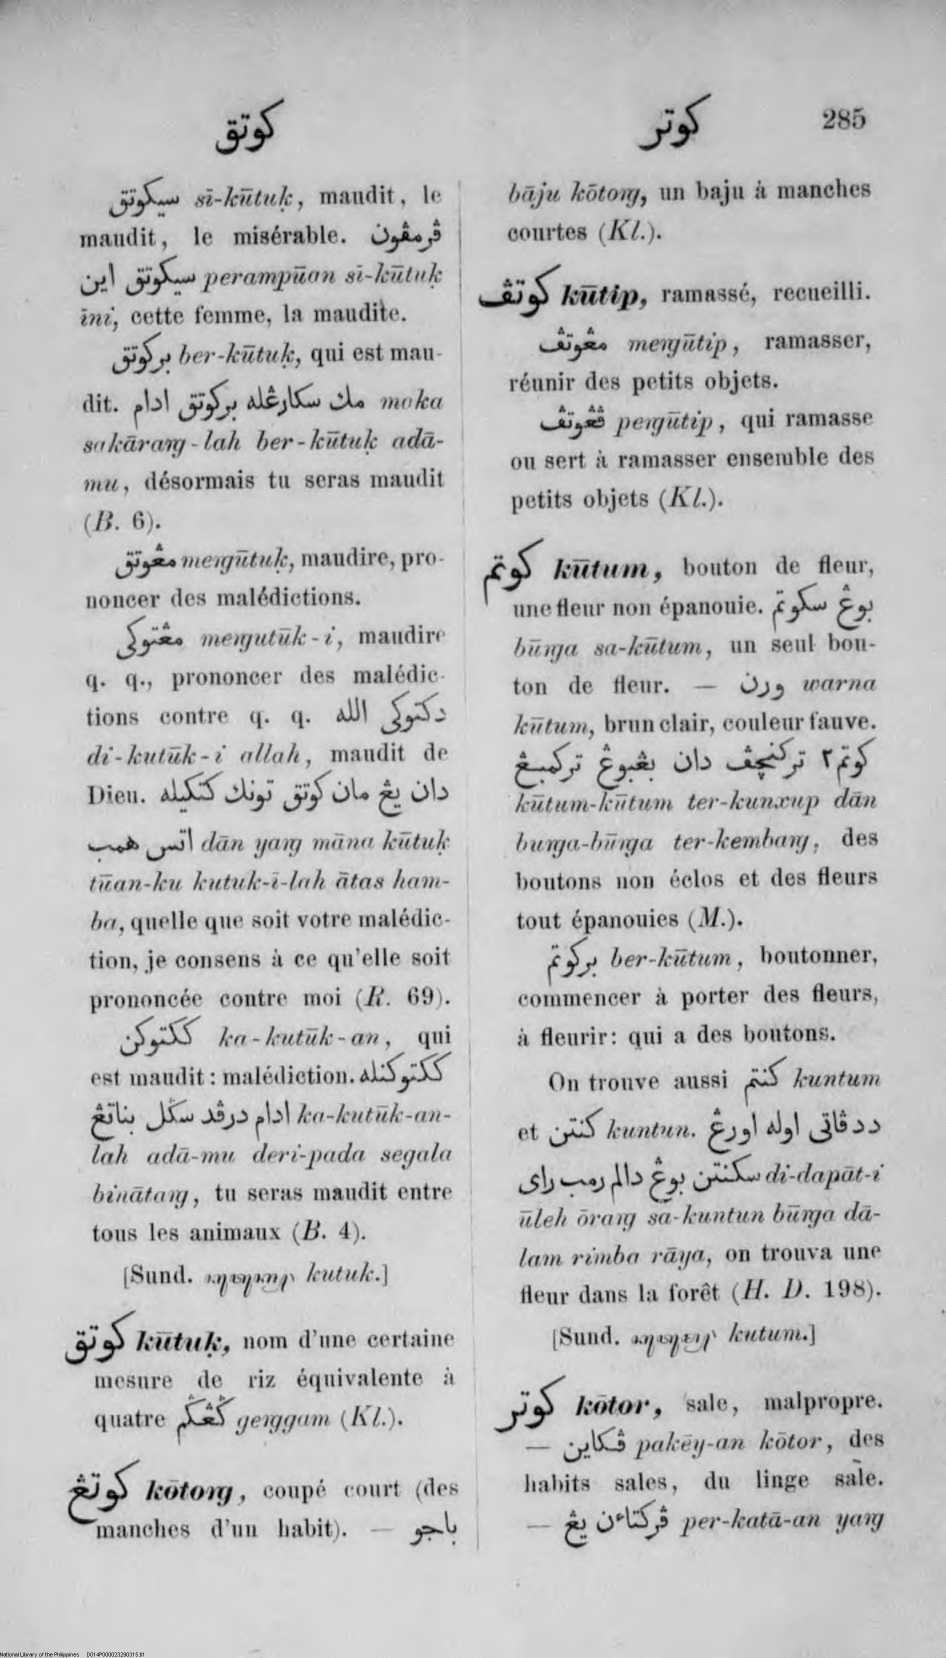 كوتق
كوتر 285
سيكوتق si-kūtuḳ, maudit, le
maudit, le misérable. ڤرمڤون
سيكوتق اين perampūan si-kūtuḳ
īni, cette femme, la maudite.
بركوتق ber-kūtuḳ, qui est mau-
dit. مك سكارڠله بركوتق ادام moka
sakārarŋ-lah ber-kūtuḳ adā-
mu, désormais tu seras maudit
(B. 6).
مڠوتق merŋūtuḳ, maudire, pro-
noncer des malédictions.
مڠتوكي merŋutūk-i, maudire
q. q., prononcer des malédic-
tions contre q. q. دكتوكي الله
di-kutūk-i allah, maudit de
Dieu. دان يڠ مان كوتق تونك كتكيله
اتس همب dān yarŋ māna kūtuḳ
tūan-ku kutuk-ī-lah ātas ham-
ba, quelle que soit votre malédic-
tion, je consens à ce qu'elle soit
prononcée contre moi (R. 69).
ككتوكن ka-kutūk-an, qui
est maudit : malédiction. ككتوكنله
ادام درڤد سگل بناتڠ ka-kutūk-an-
lah adā-mu deri-pada segala
binātarŋ, tu seras maudit entre
tous les animaux (B. 4).
[Sund. kutuk.]
كوتق kūtuḳ, nom d'une certaine
mesure de riz équivalente à
quatre گڠگم gerŋgam (Kl.).
كوتڠ kōtorŋ, coupé court (des
manches d'un habit). — باجو
bāju kōtorŋ, un baju à manches
courtes (Kl.).
كوتڤ kūtip, ramassé, recueilli.
مڠوتڤ merŋūtip, ramasser,
réunir des petits objets.
ڤڠوتڤ perŋūtip, qui ramasse
ou sert à ramasser ensemble des
petits objets (Kl.).
كوتم kūtum, bouton de fleur,
une fleur non épanouie. بوڠ سكوتم
būrŋa sa-kūtum, un seul bou-
ton de fleur. — ورن warna
kūtum, brun clair, couleur fauve.
كوتم٢ تركنچڤ دان بڠبوڠ تركمبڠ
kūtum-kūtum ter-kunxup dān
burŋa-būrŋa ter-kembarŋ, des
boutons non éclos et des fleurs
tout épanouies (M.).
بركوتم ber-kūtum, boutonner,
commencer à porter des fleurs,
à fleurir: qui a des boutons.
On trouve aussi كنتم kuntum
et كنتن kuntun. ددڤاتي اوله اورڠ
سكنتن بوڠ دالم رمب راي di-dapāt-i
ūleh ōrarŋ sa-kuntun būrŋa dā-
lam rimba rāya, on trouva une
fleur dans la forêt (H. D. 198).
[Sund. kutum.]
كوتر kōtor, sale, malpropre.
— ڤكاين pakēy-an kōtor, des
habits sales, du linge sale.
— ڤركتاءن يڠ per-katā-an yarŋ
National Library of the Philippines